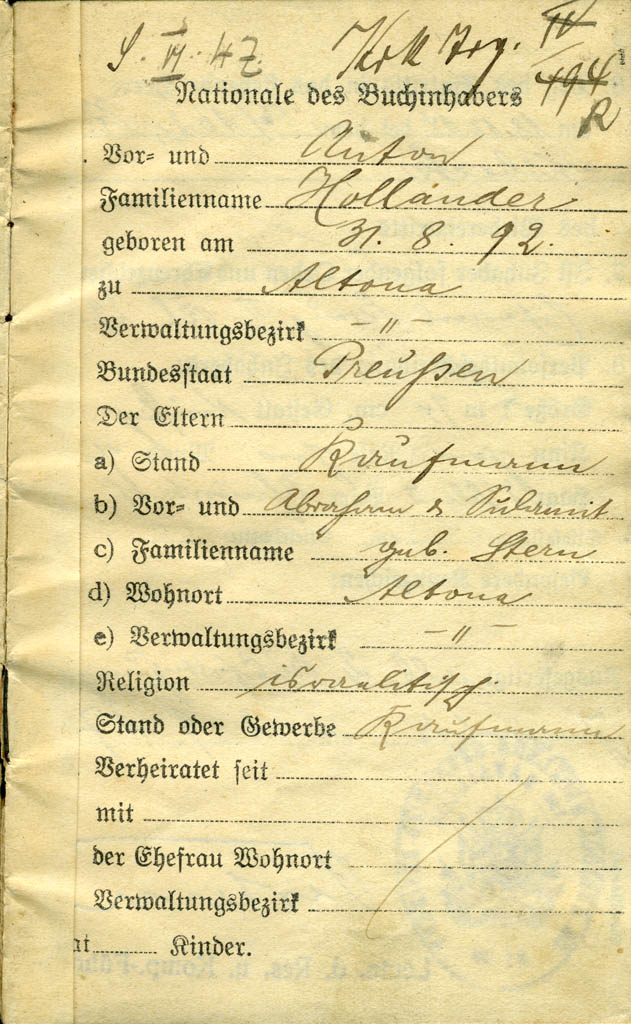 Nationale des Buchinhabers
Vor- und Anton
Familienname Hollander
geboren am 31. 8. 92.
zu Altona
Verwaltungsbezirk – " –
Bundesstaat Preußen
Der Eltern
a) Stand Kaufmann
b) Vor- und Abraham & Sulamit
c) Familienname geb. Stern
d) Wohnort Altona
e) Verwaltungsbezirk – " –
Religion israelitisch.
Stand oder Gewerbe Kaufmann
Verheiratet seit
mit
der Ehefrau Wohnort
Verwaltungsbezirk
at Kinder.